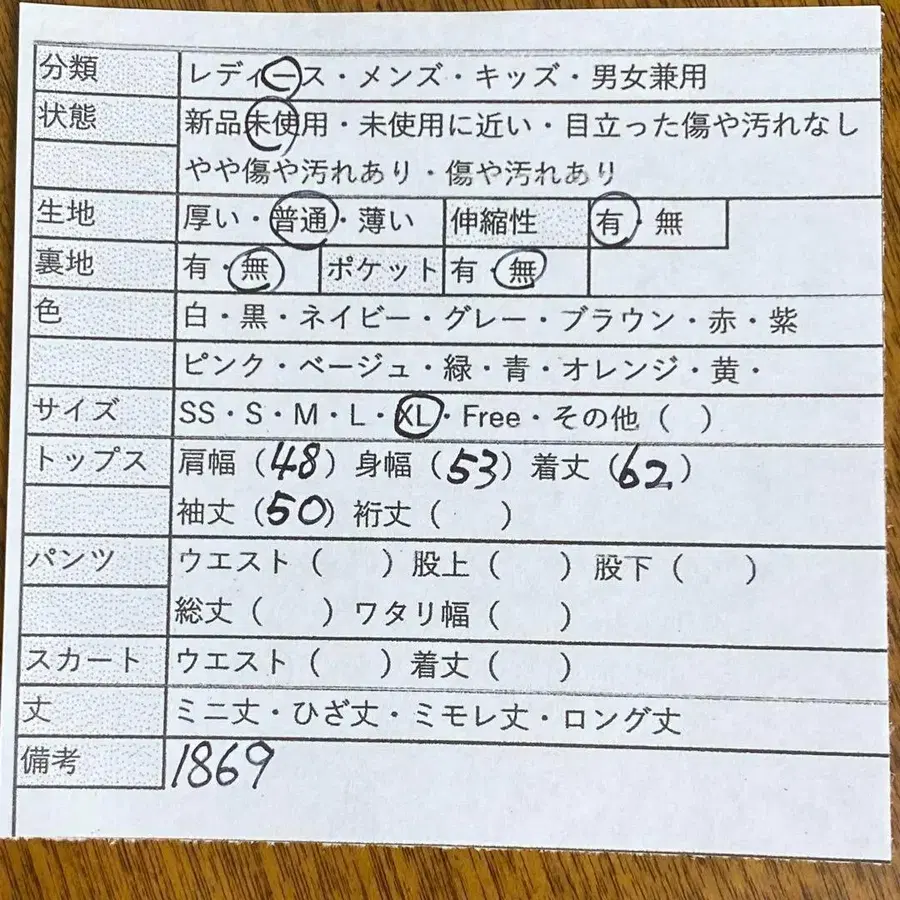 分類 レディース・メンズ・キッズ・男女兼用
状態 新品未使用・未使用に近い・目立った傷や汚れなし
やや傷や汚れあり・傷や汚れあり
生地 厚い・普通・薄い 伸縮性 有・無
裏地 有・無 ポケット 有・無
色 白・黒・ネイビー・グレー・ブラウン・赤・紫
ピンク・ベージュ・緑・青・オレンジ・黄・
サイズ SS・S・M・L・XL・Free・その他（ ）
トップス 肩幅（48）身幅（53）着丈（62）
袖丈（50）裄丈（ ）
パンツ ウエスト（ ）股上（ ）股下（ ）
総丈（ ）ワタリ幅（ ）
スカート ウエスト（ ）着丈（ ）
丈 ミニ丈・ひざ丈・ミモレ丈・ロング丈
備考 1869